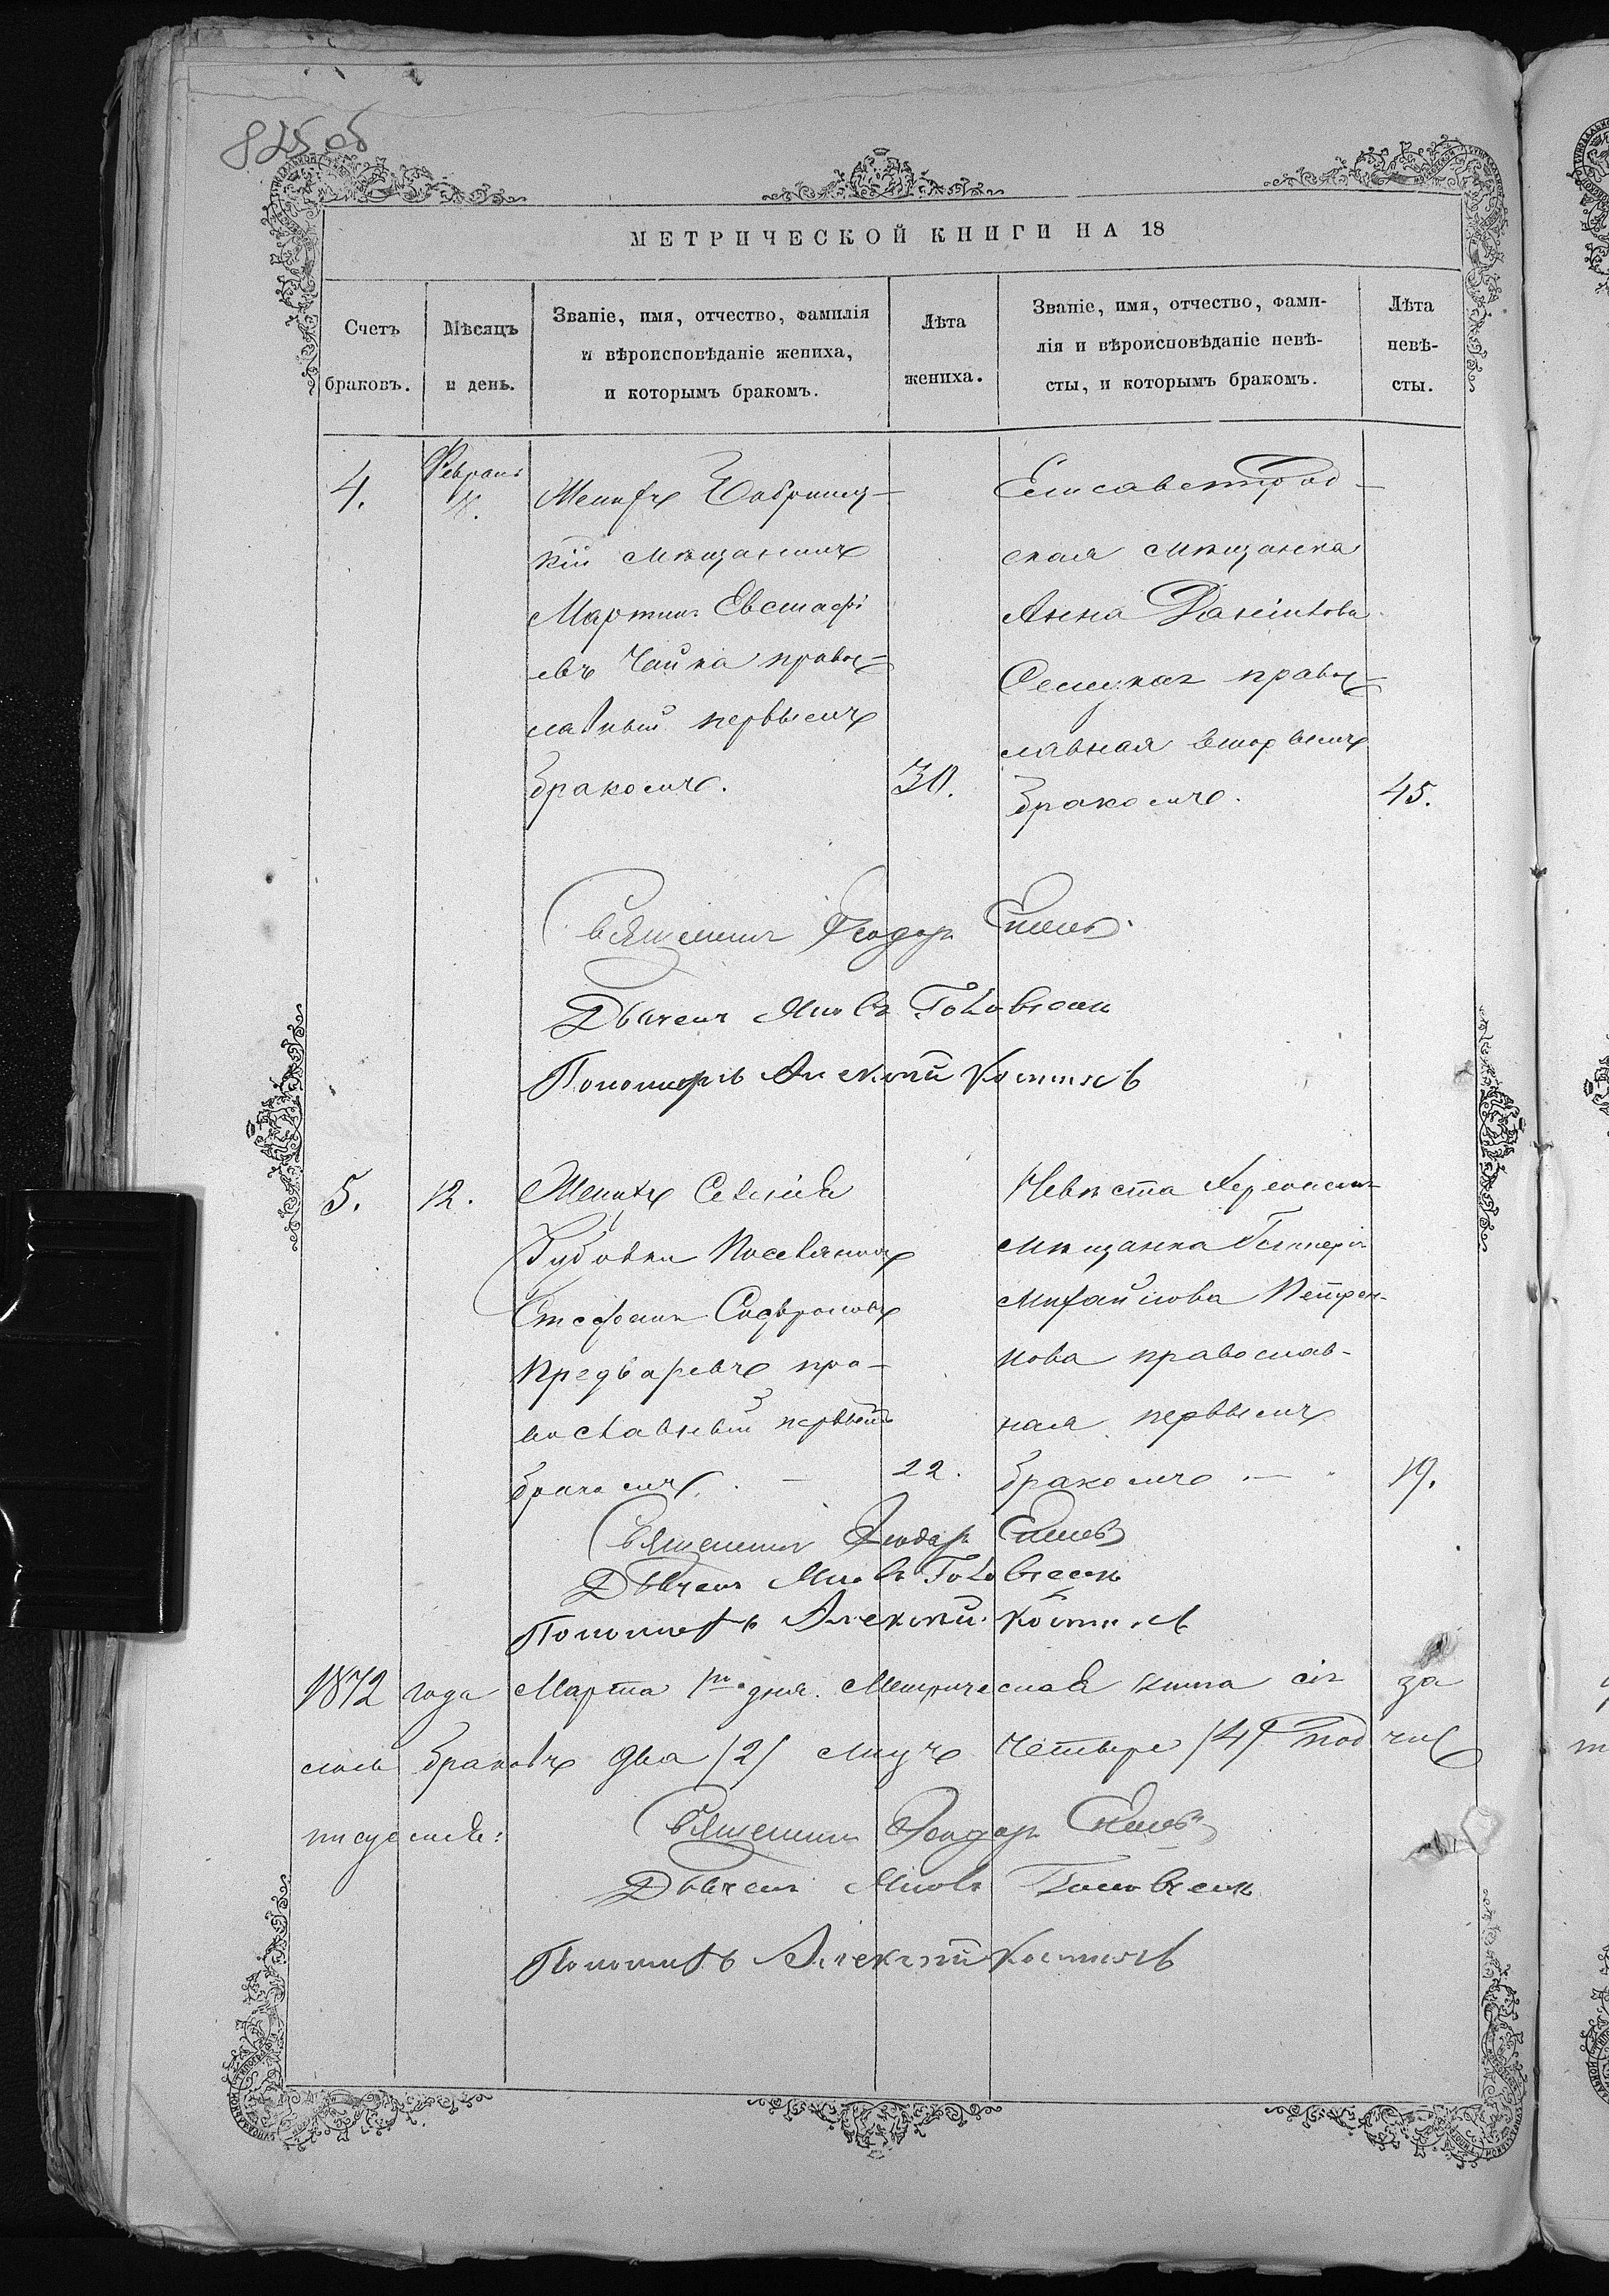 825 об
МЕТРИЧЕСКОЙ КНИГИ НА 18
Счетъ браковъ.
Мѣсяцъ и день.
Званіе, имя, отчество, фамилія
и вѣроисповѣданіе жениха,
и которымъ бракомъ.
Лѣта жениха.
Званіе, имя, отчество, фами-
лія и вѣроисповѣданіе невѣ-
сты, и которымъ бракомъ.
Лѣта невѣ-
сты.
4.
Февраль
Женихъ
кій мѣщанинъ
Мартинъ Евстафі
евъ Чайка правос=
лавный первымъ
бракомъ.
30.
Елисаветград-
ская мѣщанка
Анна Данілова
правос-
лавная вторымъ
бракомъ.
45.
Священникъ Феодоръ
Дьячекъ Яковъ Головченко
Пономарь Алексѣй
5.
12.
Женихъ Селенія
Поселянинъ
Стефанъ Софроновъ
пра-
вославный первымъ
бракомъ. -
22.
Невѣста
мѣщанка
Михайлова Петрен-
кова православ-
ная первымъ
бракомъ. -
19.
Священникъ Феодоръ
Дьячекъ Яковъ Головченко
Пономарь Алексѣй
1872 года Марта 1го дня. Метрическая книга сія за
браковъ два /2/ лицъ четыре /4/ под
писуемся:
Священникъ Феодоръ
Дьячекъ Яковъ Головченко
Пономарь Алексѣй